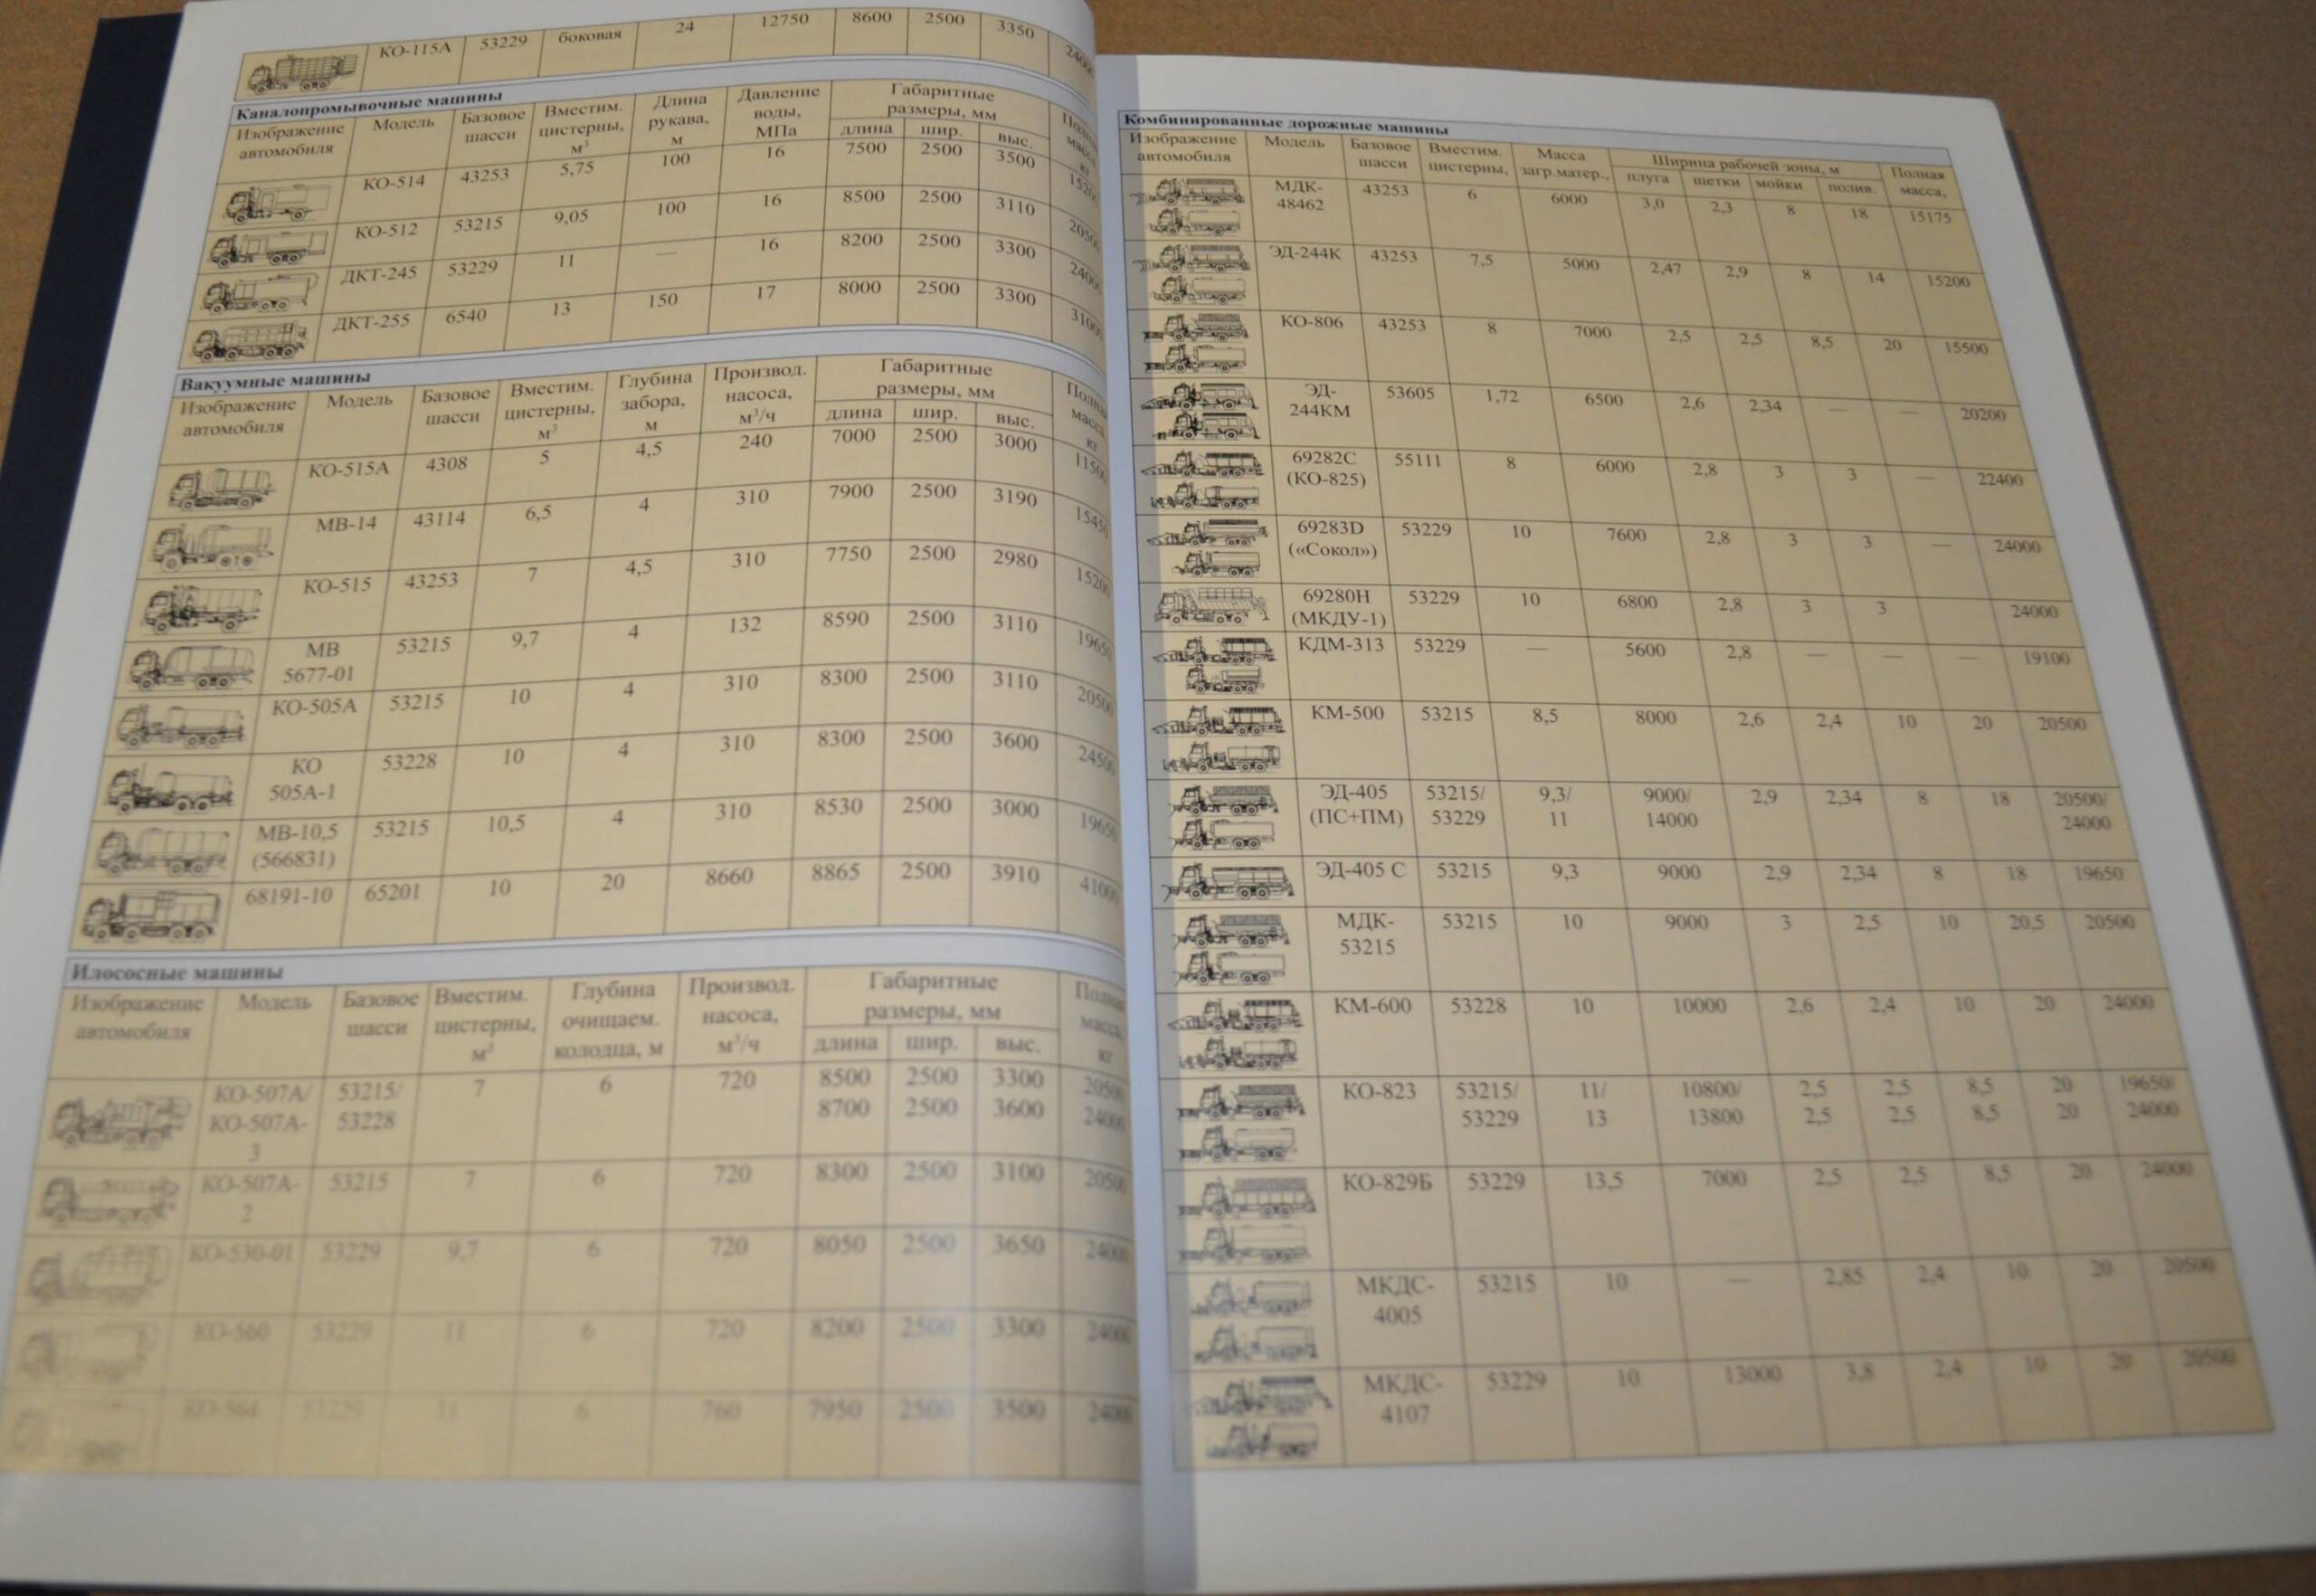 КО-115А 53229 боковая 24 12750 8600 2500 3350
Каналопромывочные машины
Изображение автомобиля Модель Базовое шасси Вместим. цистерны, м³ Длина рукава, м Давление воды, МПа Габаритные размеры, мм
длина шир. выс.
КО-514 43253 5,75 100 16 7500 2500 3500
КО-512 53215 9,05 100 16 8500 2500 3110
ДКТ-245 53229 11 — 16 8200 2500 3300
ДКТ-255 6540 13 150 17 8000 2500 3300
Вакуумные машины
Изображение автомобиля Модель Базовое шасси Вместим. цистерны, м³ Глубина забора, м Производ. насоса, м³/ч Габаритные размеры, мм
длина шир. выс. кг
КО-515А 4308 5 4,5 240 7000 2500 3000
МВ-14 43114 6,5 4 310 7900 2500 3190
КО-515 43253 7 4,5 310 7750 2500 2980
МВ 5677-01 53215 9,7 4 132 8590 2500 3110
КО-505А 53215 10 4 310 8300 2500 3110
КО 505А-1 53228 10 4 310 8300 2500 3600
МВ-10,5 (566831) 53215 10,5 4 310 8530 2500 3000
68191-10 65201 10 20 8660 8865 2500 3910 41000
Илососные машины
Изображение автомобиля Модель Базовое шасси Вместим. цистерны, м³ Глубина очищаем. колодца, м Производ. насоса, м³/ч Габаритные размеры, мм
длина шир. выс. кг
КО-507А/ 53215/ 7 6 720 8500 2500 3300 20500
КО-507А-3 53228 8700 2500 3600 24000
КО-507А-2 53215 7 6 720 8300 2500 3100 20500
КО-530-01 53229 9,7 6 720 8050 2500 3650 24000
КО-560 53229 11 6 720 8200 2500 3300 24000
КО-564 53229 11 6 760 7950 2500 3500 24000
Комбинированные дорожные машины
Изображение автомобиля Модель Базовое шасси Вместим. цистерны, Масса загр.матер., Ширина рабочей зоны, м Полная масса,
плуга щетки мойки полив.
МДК-48462 43253 6 6000 3,0 2,3 8 18 15175
ЭД-244К 43253 7,5 5000 2,47 2,9 8 14 15200
КО-806 43253 8 7000 2,5 2,5 8,5 20 15500
ЭД-244КМ 53605 1,72 6500 2,6 2,34 — 20200
69282С (КО-825) 55111 8 6000 2,8 3 3 — 22400
69283D («Сокол») 53229 10 7600 2,8 3 3 — 24000
69280Н (МКДУ-1) 53229 10 6800 2,8 3 3 24000
КДМ-313 53229 — 5600 2,8 — — — 19100
КМ-500 53215 8,5 8000 2,6 2,4 10 20 20500
ЭД-405 53215/ 9,3/ 9000/ 2,9 2,34 8 18 20500/
(ПС+ПМ) 53229 11 14000 24000
ЭД-405 С 53215 9,3 9000 2,9 2,34 8 18 19650
МДК-53215 53215 10 9000 3 2,5 10 20,5 20500
КМ-600 53228 10 10000 2,6 2,4 10 20 24000
КО-823 53215/ 11/ 10800/ 2,5 2,5 8,5 20 19650/
53229 13 13800 2,5 2,5 8,5 20 24000
КО-829Б 53229 13,5 7000 2,5 2,5 8,5 20 24000
МКДС-4005 53215 10 — 2,85 2,4 10 20 20500
МКДС-4107 53229 10 13000 3,8 2,4 10 20 20500